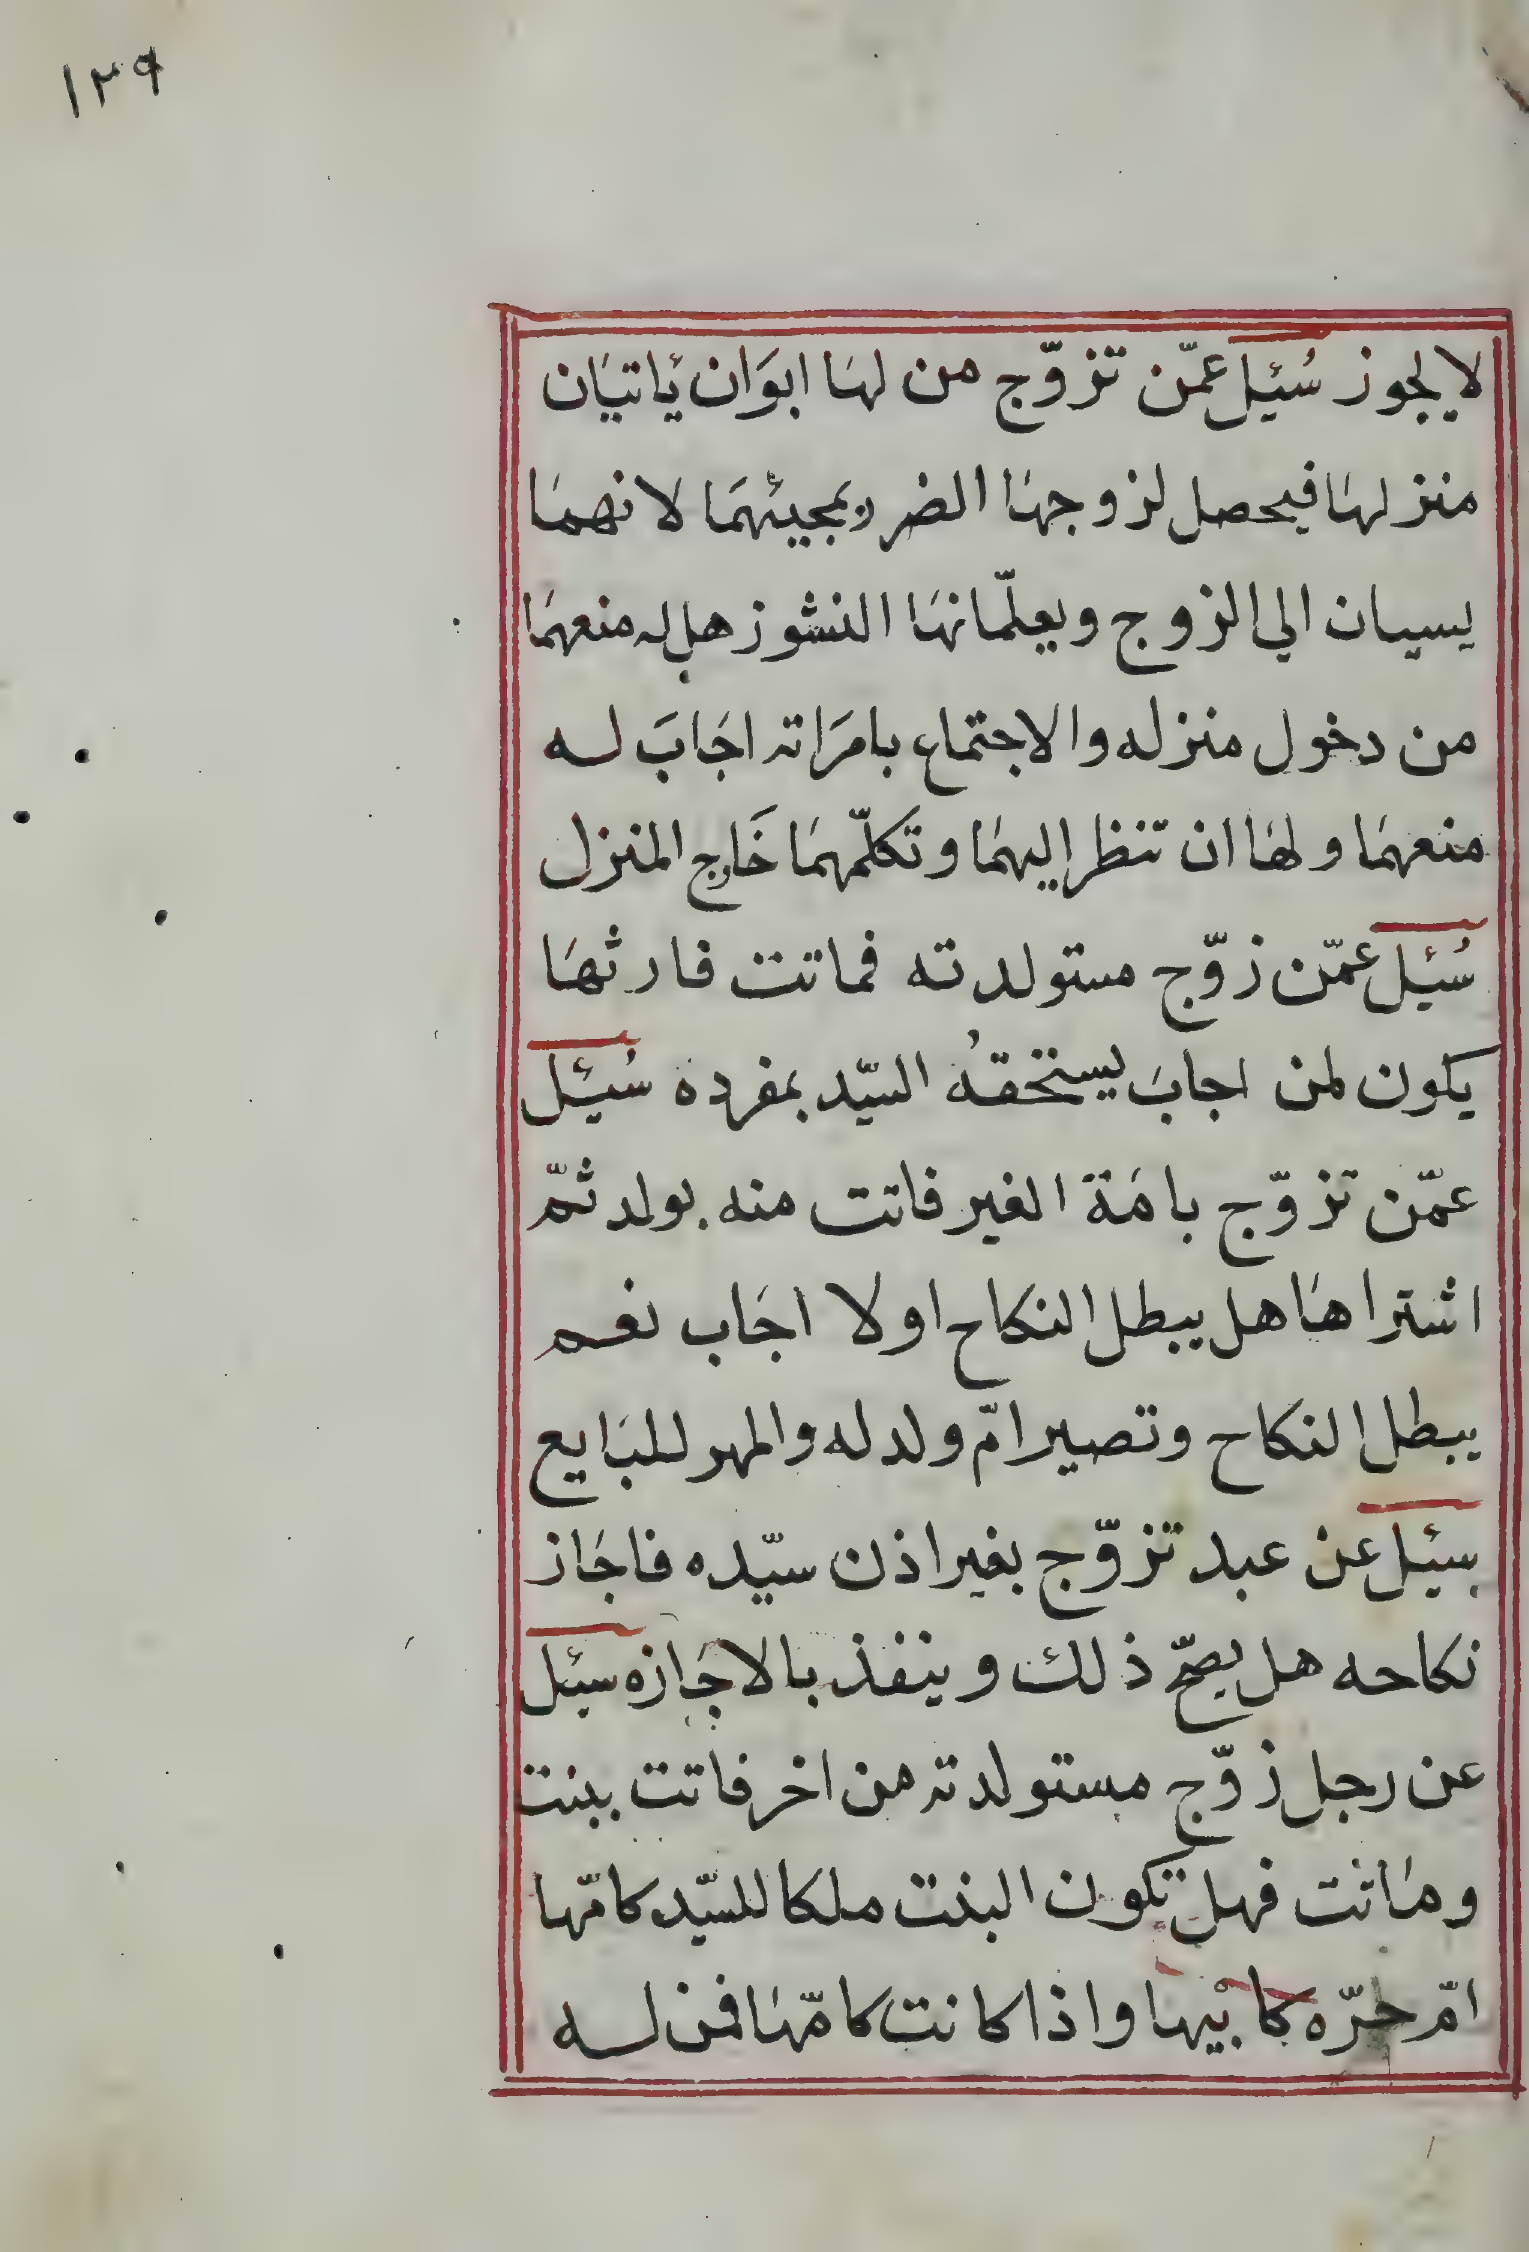 ١٣٩
لا يجوز سُئيل عمّن تزوّج من لهَا ابوَان يَاتيَان
منزلهَا فيحصل لزوجهَا الضرر بمجيئهمَا لانهمَا
يسيان الي الزوج ويعلّمانهَا النشوز هل له منعهمَا
من دخول منزله والاجتماع بامرَاته اجَابَ له
منعهمَا ولهَا ان تنظر اليهمَا وتكلّمهمَا خَارج المنزل
سُئيل عمّن زوّج مستولدته فماتت فارثهَا
يكون لمن اجابَ يستحقهُ السيّد بمفرده سُئيل
عمّن تزوّج بامَة الغير فاتت منه بولد ثمّ
اشتراهَا هل يبطل النكاح اولا اجَاب نعم
يبطل النكاح وتصير امّ ولد له والمهر للبَايع
سئيل عن عبد تزوّج بغير اذن سيّده فاجَاز
نكاحه هل يصحّ ذلك وينفذ بالاجَازه سئيل
عن رجل زوّج مستولدته من اخر فاتت ببنت
ومَاتت فهل تكون البنت ملكا للسيّد كامّها
امّ حرّه كابيها واذا كانت كامّهَا فمن له